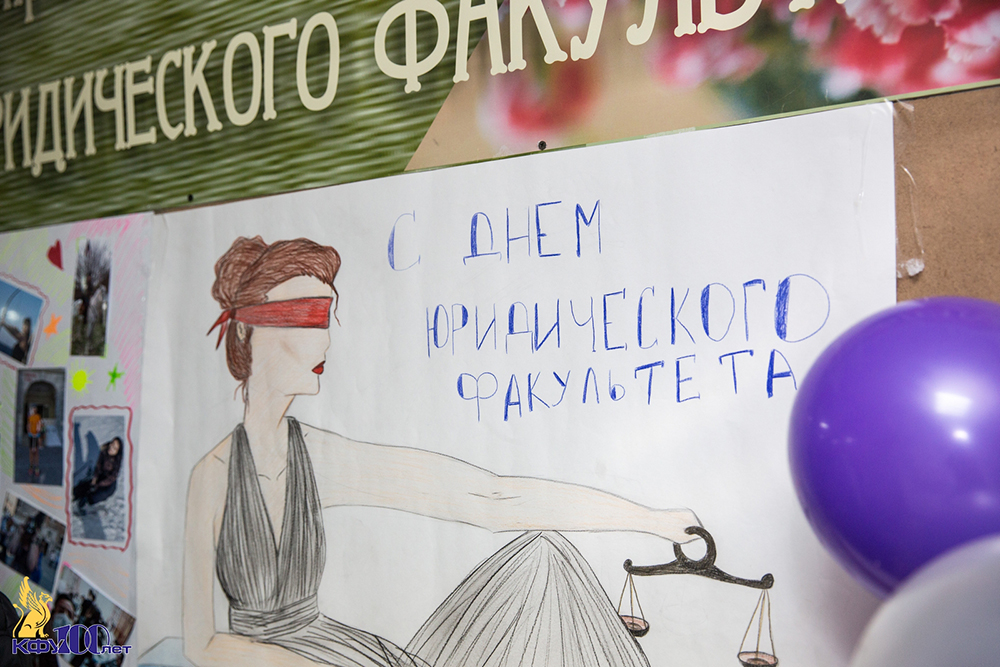 ЮРИДИЧЕСКОГО ФАКУЛЬТ
С ДНЕМ
ЮРИДИЧЕСКОГО
ФАКУЛЬТЕТА
КФУ 100 лет